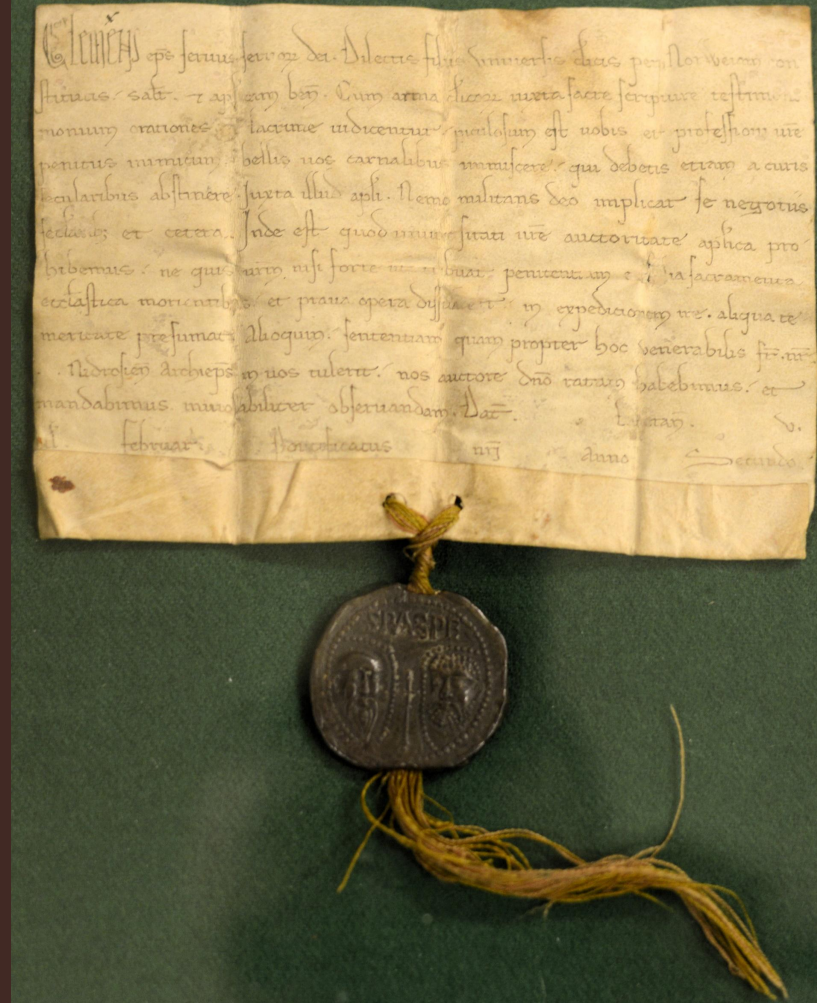 Clemens eps seruus seruoꝝ dei. Dilectis filiis uniuersis clicis per Norweiam con
stitutis. salt. ⁊ aplicam bn̄. Cum arma clicoꝝ iuxta sacre scripture testimo
monium orationes et lacrime iudicentur. piculosum est uobis et professioni ur̄e
penitus inimicum. bellis uos carnalibus inmiscere. qui debetis etiam a curis
secularibus abstinere. Iuxta illud apli. Nemo militans deo implicat se negotiis
sclarib; et cetera. Inde est quod uniuersitati ur̄e auctoritate aplica pro
hibemus. ne quis urm̄ nisi forte ut tribuat penitentiam sacramenta
ecclastica morientibus. et praua opera dissuadeat. in expedicionem ire. aliqua te
meritate presumat. Alioquin. sententiam quam propter hoc uenerabilis fr̄. nr̄.
. . Nidrosien̄ Archieps in uos tulerit. nos auctore dn̄o ratam habebimus. et
mandabimus inuiolabiliter obseruandam. Dat̄. Lateran̄. V.
februar. Pontificatus nr̄j Anno Secundo.
SPASPE